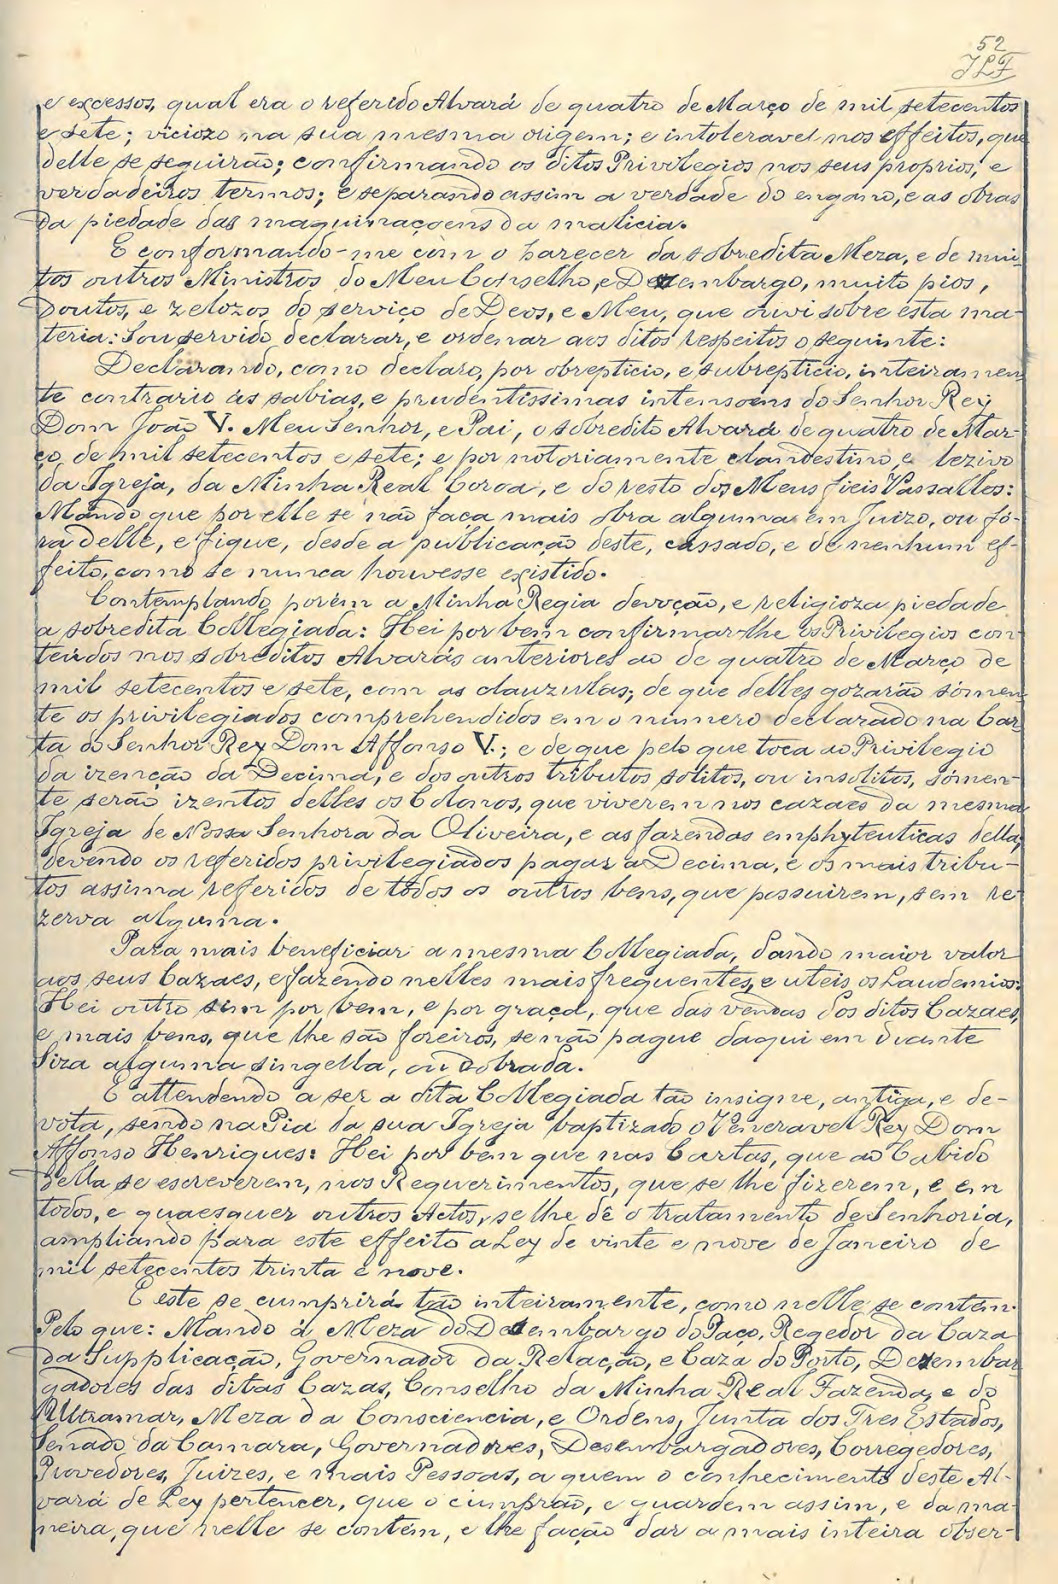 52
JLF
e excessos, qual era o referido Alvará de quatro de Março de mil setecentos
e sete; viciozo na sua mesma origem; e intoleravel nos effeitos, que
delle se seguirão; confirmando os ditos Privilegios nos seus proprios, e
verdadeiros termos; e separando assim a verdade do engano, e as obras
da piedade das maquinaçoens da malicia.
E conformando-me com o parecer da sobredita Meza, e de mui-
tos outros Ministros do Meu Conselho, e Dezembargo, muito pios,
Doutos, e zelozos do serviço de Deos, e Meu, que ouvi sobre esta ma-
teria: Sou servido declarar, e ordenar aos ditos respeitos o seguinte:
Declarando, como declaro, por obrepticio, e subrepticio, inteiramen-
te contrario ás sabias, e prudentissimas intensoens do Senhor Rey
Dom João V. Meu Senhor, e Pai, o sobredito Alvará de quatro de Mar-
ço de mil setecentos e sete; e por notoriamente clandestino, e lezivo
da Igreja, da Minha Real Coroa, e do resto dos Meus fieis Vassallos:
Mando que por elle se não faça mais obra alguma em Juizo, ou fó-
ra delle, e fique, desde a publicação deste, cassado, e de nenhum ef-
feito, como se nunca houvesse existido.
Contemplando porém a Minha Regia devoção, e religioza piedade
a sobredita Collegiada: Hei por bem confirmar-lhe os Privilegios con-
teúdos nos sobreditos Alvarás anteriores ao de quatro de Março de
mil setecentos e sete, com as clauzulas; de que delles gozarão sómen-
te os privilegiados comprehendidos em o número declarado na Car-
ta do Senhor Rey Dom Affonso V.; e de que pelo que toca ao Privilegio
da izenção da Decima, e dos outros tributos solitos, ou insolitos, sómen-
te serão izentos delles os Colonos, que viverem nos cazaes da mesma
Igreja de Nossa Senhora da Oliveira, e as fazendas emphyteuticas della,
devendo os referidos privilegiados pagar a Decima, e os mais tribu-
tos assima referidos de todos os outros bens, que possuirem, sem re-
zerva alguma.
Para mais beneficiar a mesma Collegiada, dando maior valor
aos seus Cazaes, e fazendo nelles mais frequentes, e uteis os Laudemios:
Hei outro sim por bem, e por graça, que das vendas dos ditos Cazaes,
e mais bens, que lhe são foreiros, se não pague daqui em diante
Siza alguma singella, ou dobrada.
E attendendo a ser a dita Collegiada tão insigne, antiga, e de-
vota, sendo na Pia da sua Igreja baptizado o Veneravel Rey Dom
Affonso Henriques: Hei por bem que nas Cartas, que ao Cabido
della se escreverem, nos Requerimentos, que se lhe fizerem, e em
todos, e quaesquer outros Actos, se lhe dê o tratamento de Senhoria,
ampliando para este effeito a Ley de vinte e nove de Janeiro de
mil setecentos trinta e nove.
E este se cumprirá tão inteiramente, como nelle se contém.
Pelo que: Mando á Meza do Dezembargo do Paço, Regedor da Caza
da Supplicação, Governador da Relação, e Caza do Porto, Dezembar-
gadores das ditas Cazas, Conselho da Minha Real Fazenda, e do
Ultramar, Meza da Consciencia, e Ordens, Junta dos Tres Estados,
Senado da Camara, Governadores, Desembargadores, Corregedores,
Provedores, Juizes, e mais Pessoas, a quem o conhecimento deste Al-
vará de Ley pertencer, que o cumprão, e guardem assim, e da ma-
neira, que nelle se contém, e lhe fação dar a mais inteira obser-